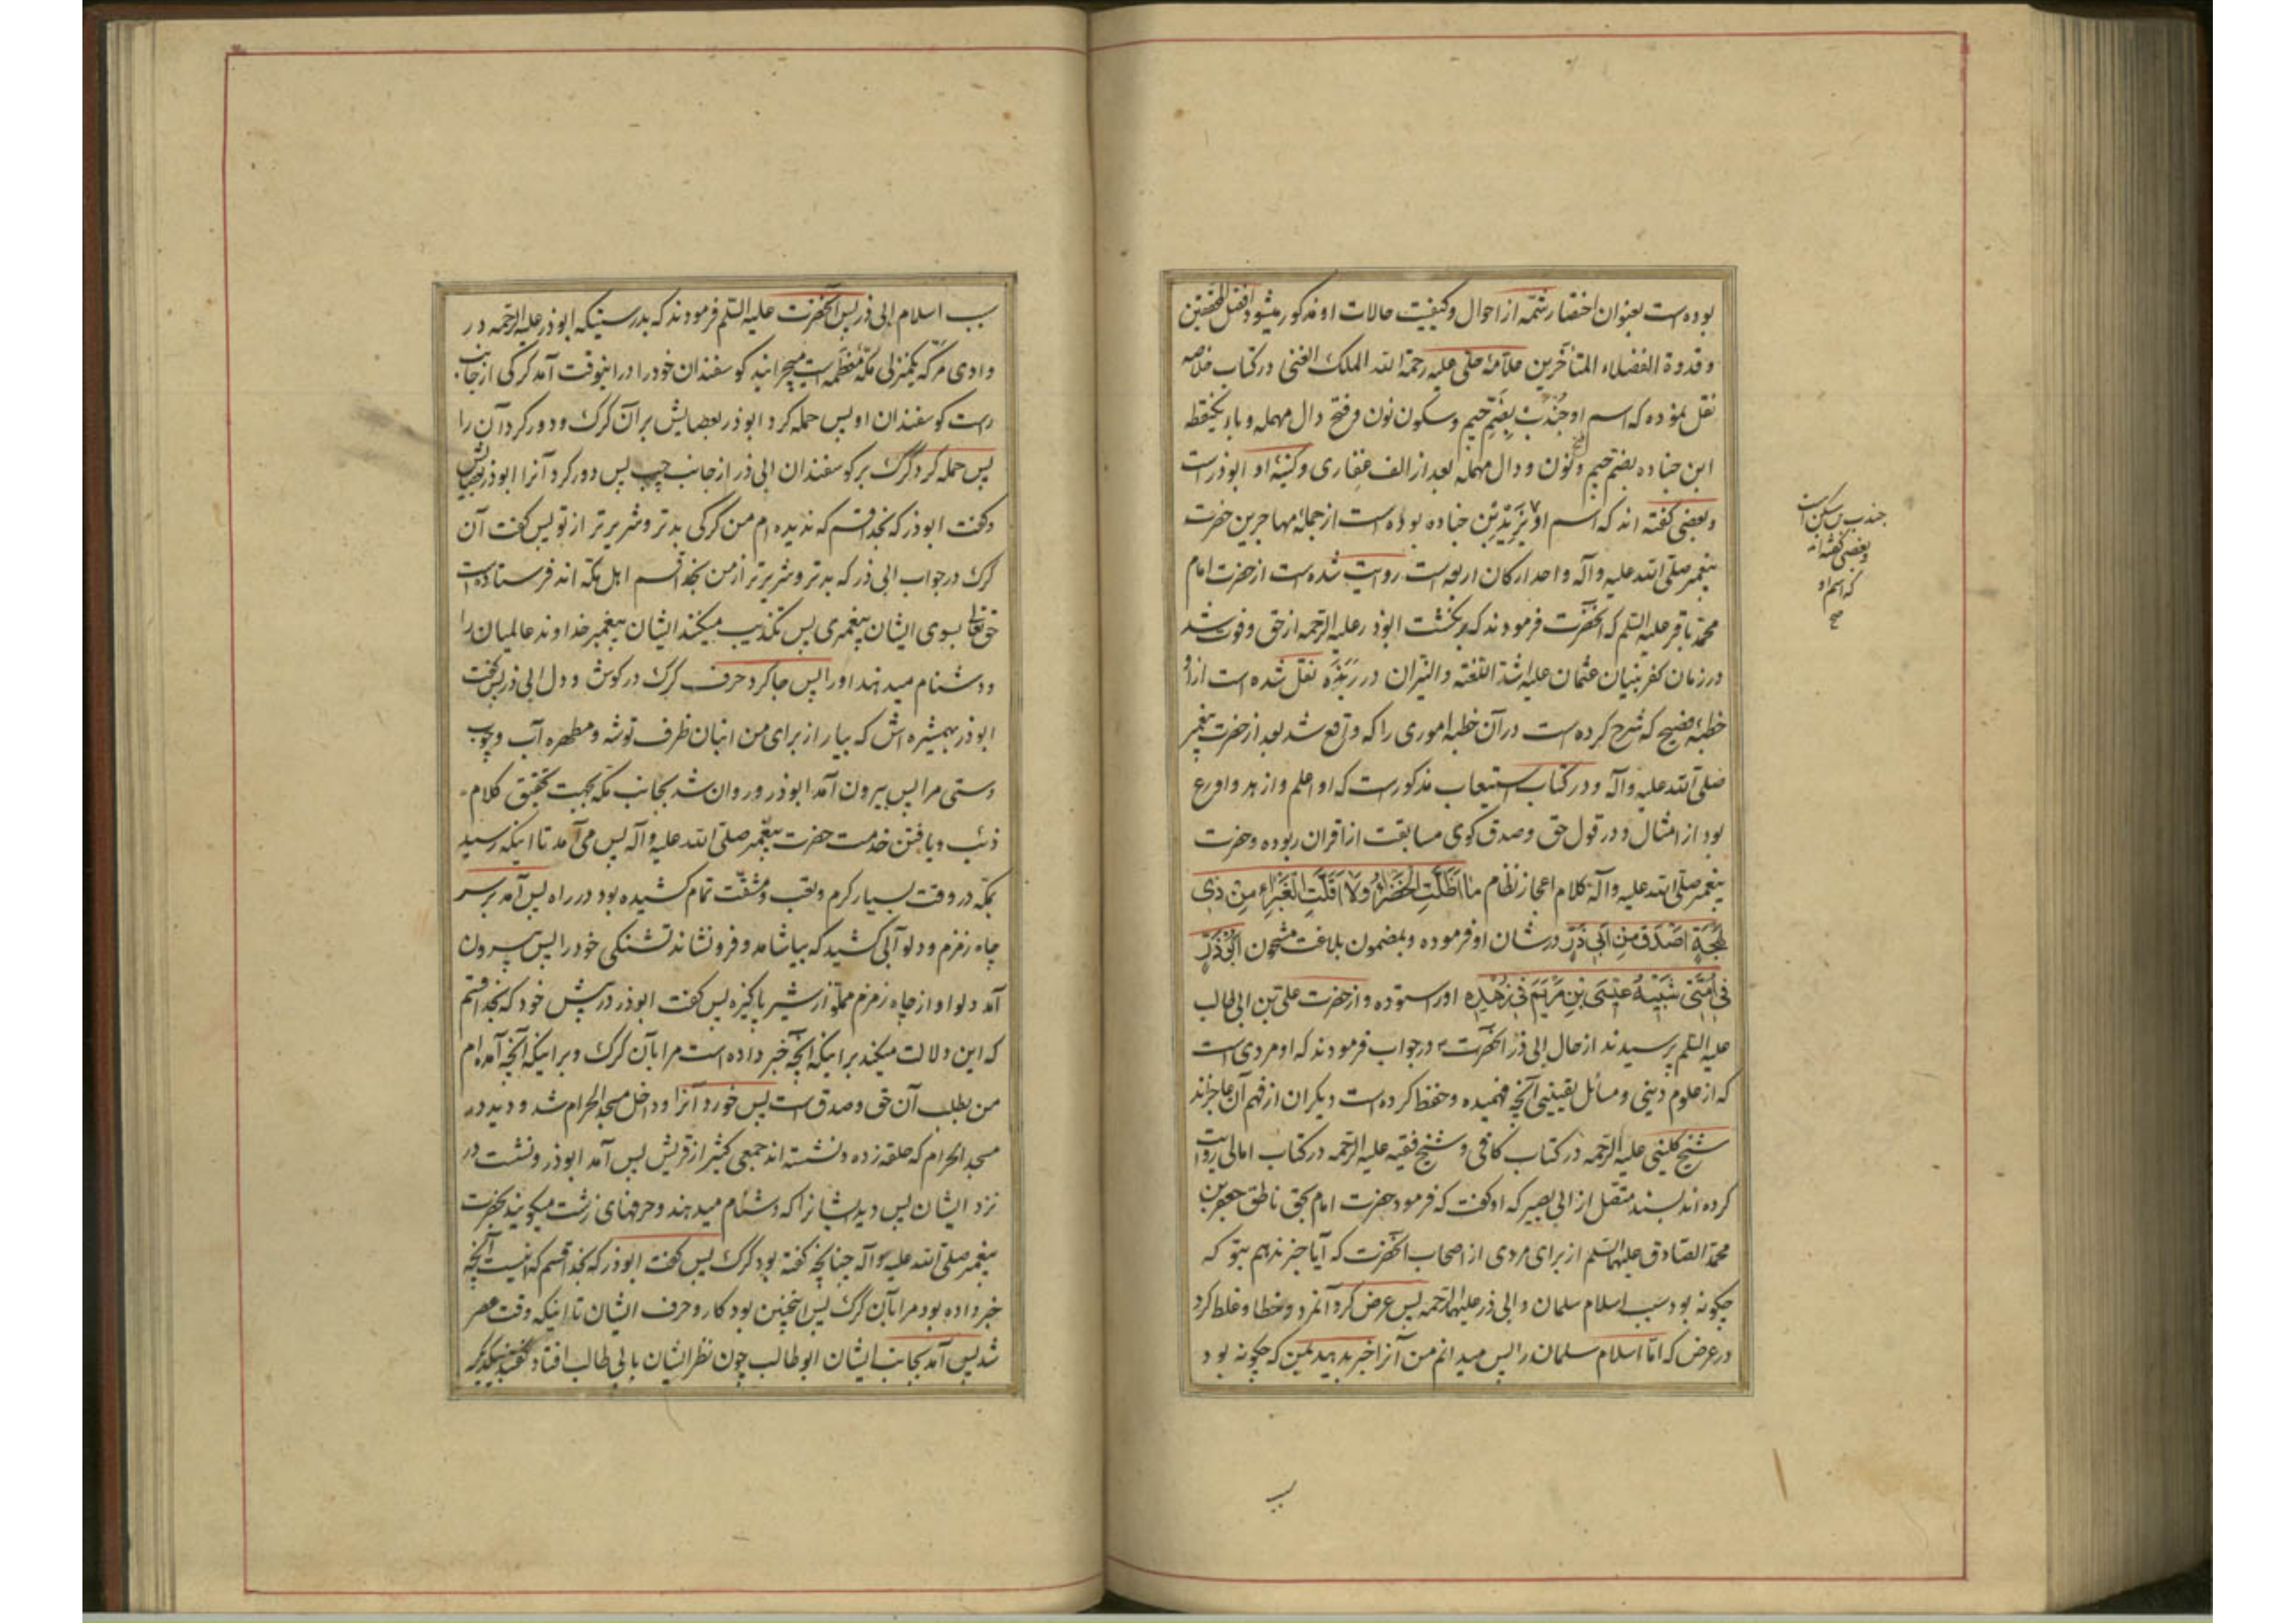 بوده است بعنوان اختصار شمّه از احوال و کیفیت حالات او مذکور میشود افضل المحققین
و قدوة الفضلاء المتأخرین علامهٔ حلی علیه رحمة الله الملک الغنی در کتاب خلاصه
نقل نموده که اسم او جُندَب بضمّ جیم و سکون نون و فتح دال مهمله و باء یکنقطه
ابن جناده بضم جیم و نون و دال مهمله بعد از الف غفاری و کنیهٔ او ابوذر است
و بعضی گفته اند که اسم او بُرَیْر بْن جناده بوده است از جملهٔ مهاجرین حضرت
پیغمبر صلّی الله علیه و آله و احد ارکان اربعه است روایت شده است از حضرت امام
محمّد باقر علیه السّلم که آنحضرت فرمودند که برنگشت ابوذر علیه الرّحمه از حق و فوت شد
در زمان کفر بنیان عثمان علیه اشدّ اللّعنة والنّیران در رَبَذَه نقل شده است از او
خطبهٔ فصیح که شرح کرده است در آن خطبه اموری را که واقع شد بعد از حضرت پیغمبر
صلّی الله علیه و آله و در کتاب استیعاب مذکور است که او اعلم و ازهد و اورع
بود از امثال و در قول حق و صدق گوی مسابقت از اقران ربوده و حضرت
پیغمبر صلّی الله علیه و آله کلام اعجاز نظام مٰا اَظَلَّتِ الخَضْرٰاءُ وَلاٰ اَقَلَّتِ الغَبْرٰاءِ مِنْ ذی
لَهْجَةٍ اَصْدَقَ مِنْ اَبی ذَرٍّ در شان او فرموده و بمضمون بلاغت مشحون اَبُوذَرٍّ
فی اُمَّتی شَبیٖهُ عیٖسَی بْنِ مَرْیَمَ فی زُهْدِهِ او را ستوده و از حضرت علی بن ابی طالب
علیه السّلم پرسیدند از حال ابی ذر آنحضرت در جواب فرمودند که او مردی است
که از علوم دینی و مسائل یقینی آنچه فهمیده و حفظ کرده است دیگران از فهم آن عاجزاند
شیخ کلینی علیه الرّحمه در کتاب کافی و شیخ فقیه علیه الرّحمه در کتاب امالی روایت
کرده اند بسند متّصل از ابی بصیر که او گفت که فرمود حضرت امام بحق ناطق جعفر بن
محمّد الصّادق علیهما السّلم از برای مردی از اصحاب آنحضرت که آیا خبر ندهم بتو که
چگونه بود سبب اسلام سلمان و ابی ذر علیهما الرّحمه پس عرض کرد آنمرد و خطا و غلط کرد
در عرض که امّا اسلام سلمان را پس میدانم من آنرا خبر بدهید بمن که چگونه بود
سبب
جندب بن سکن است
و بعضی گفته اند
که اسم او
صح
سبب اسلام ابی ذر پس آنحضرت علیه السّلم فرمودند که بدرستیکه ابوذر علیه الرّحمه در
وادی مرّ که یکمنزلی مکّهٔ معظّمه است میچرانید گوسفندان خود را در اینوقت آمد گرگی از جانب
راست گوسفندان او پس حمله کرد ابوذر بعصایش بر آن گرگ و دور کرد آن را
پس حمله کرد گرگ بر گوسفندان ابی ذر از جانب چپ پس دور کرد آنرا ابوذر بعصایش
و گفت ابوذر که بخدا قسم که ندیده ام من گرگی بدتر و شریرتر از تو پس گفت آن
گرگ در جواب ابی ذر که بدتر و شریرتر از من بخدا قسم اهل مکّه اند فرستاده است
حق تعالی بسوی ایشان پیغمبری پس تکذیب میکنند ایشان پیغمبر خداوند عالمیان را
و دشنام میدهند او را پس جا کرد حرف گرگ در گوش و دل ابی ذر پس گفت
ابوذر بهمشیره اش که بیار از برای من انبان ظرف توشه و مطهره آب و چوب
دستی مرا پس بیرون آمد ابوذر و روان شد بجانب مکّه بجهت تحقیق کلام
ذئب و یافتن خدمت حضرت پیغمبر صلّی الله علیه و آله پس می آمد تا اینکه رسید
بمکّه در وقت بسیار گرم و تعب و مشقّت تمام کشیده بود در راه پس آمد بر سر
چاه زمزم و دلو آبی کشید که بیاشامد و فرو نشاند تشنگی خود را پس بیرون
آمد دلو او از چاه زمزم مملوّ از شیر پاکیزه پس گفت ابوذر در پیش خود که بخدا قسم
که این دلالت میکند بر اینکه آنچه خبر داده است مرا بآن گرگ و بر اینکه آنچه آمده ام
من بطلب آن حق و صدق است پس خورد آنرا و داخل مسجد الحرام شد و دید در
مسجد الحرام که حلقه زده و نشسته اند جمعی کثیر از قریش پس آمد ابوذر و نشست در
نزد ایشان پس دید ایشانرا که دشنام میدهند و حرفهای زشت میگویند بحضرت
پیغمبر صلّی الله علیه و آله چنانچه گفته بود گرگ پس گفت ابوذر که بخدا قسم که اینست آنچه
خبر داده بود مرا بآن گرگ پس اینچنین بود کار و حرف ایشان تا اینکه وقت عصر
شد پس آمد بجانب ایشان ابوطالب چون نظر ایشان بابی طالب افتاد گفتند بیکدیگر